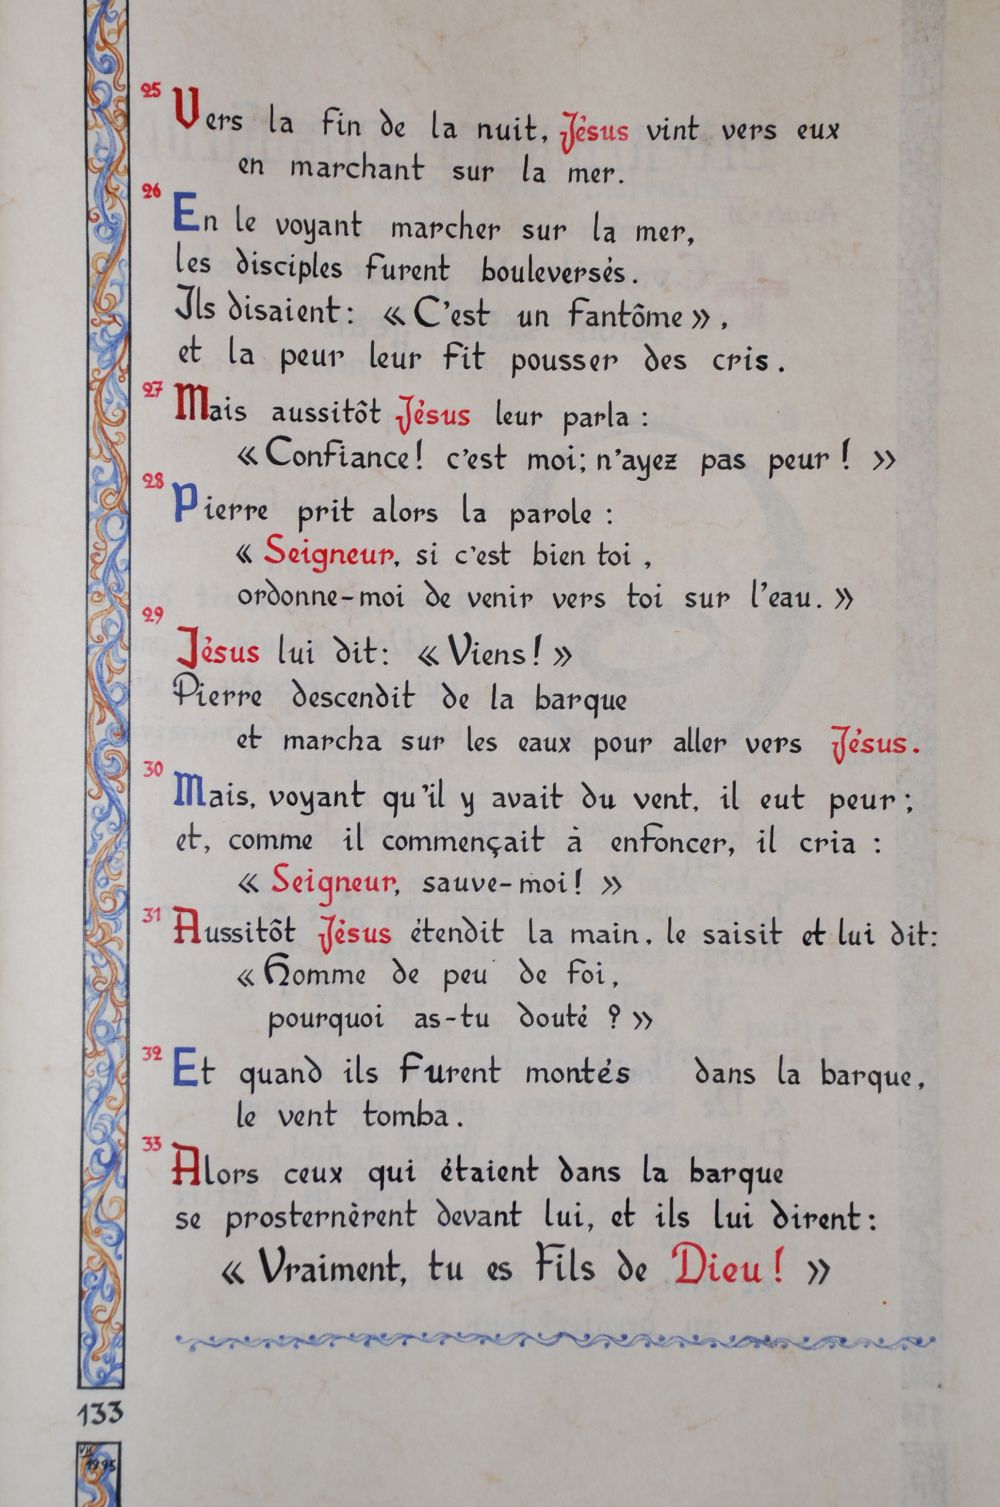 25
Vers la fin de la nuit, Jésus vint vers eux
en marchant sur la mer.
26
En le voyant marcher sur la mer,
les disciples furent bouleversés.
Ils disaient : « C'est un fantôme »,
et la peur leur fit pousser des cris.
27
Mais aussitôt Jésus leur parla :
« Confiance ! c'est moi ; n'ayez pas peur ! »
28
Pierre prit alors la parole :
« Seigneur, si c'est bien toi,
ordonne-moi de venir vers toi sur l'eau. »
29
Jésus lui dit : « Viens ! »
Pierre descendit de la barque
et marcha sur les eaux pour aller vers Jésus.
30
Mais, voyant qu'il y avait du vent, il eut peur ;
et, comme il commençait à enfoncer, il cria :
« Seigneur, sauve-moi ! »
31
Aussitôt Jésus étendit la main, le saisit et lui dit :
« Homme de peu de foi,
pourquoi as-tu douté ? »
32
Et quand ils furent montés dans la barque,
le vent tomba.
33
Alors ceux qui étaient dans la barque
se prosternèrent devant lui, et ils lui dirent :
« Vraiment, tu es Fils de Dieu ! »
133
VII
1995